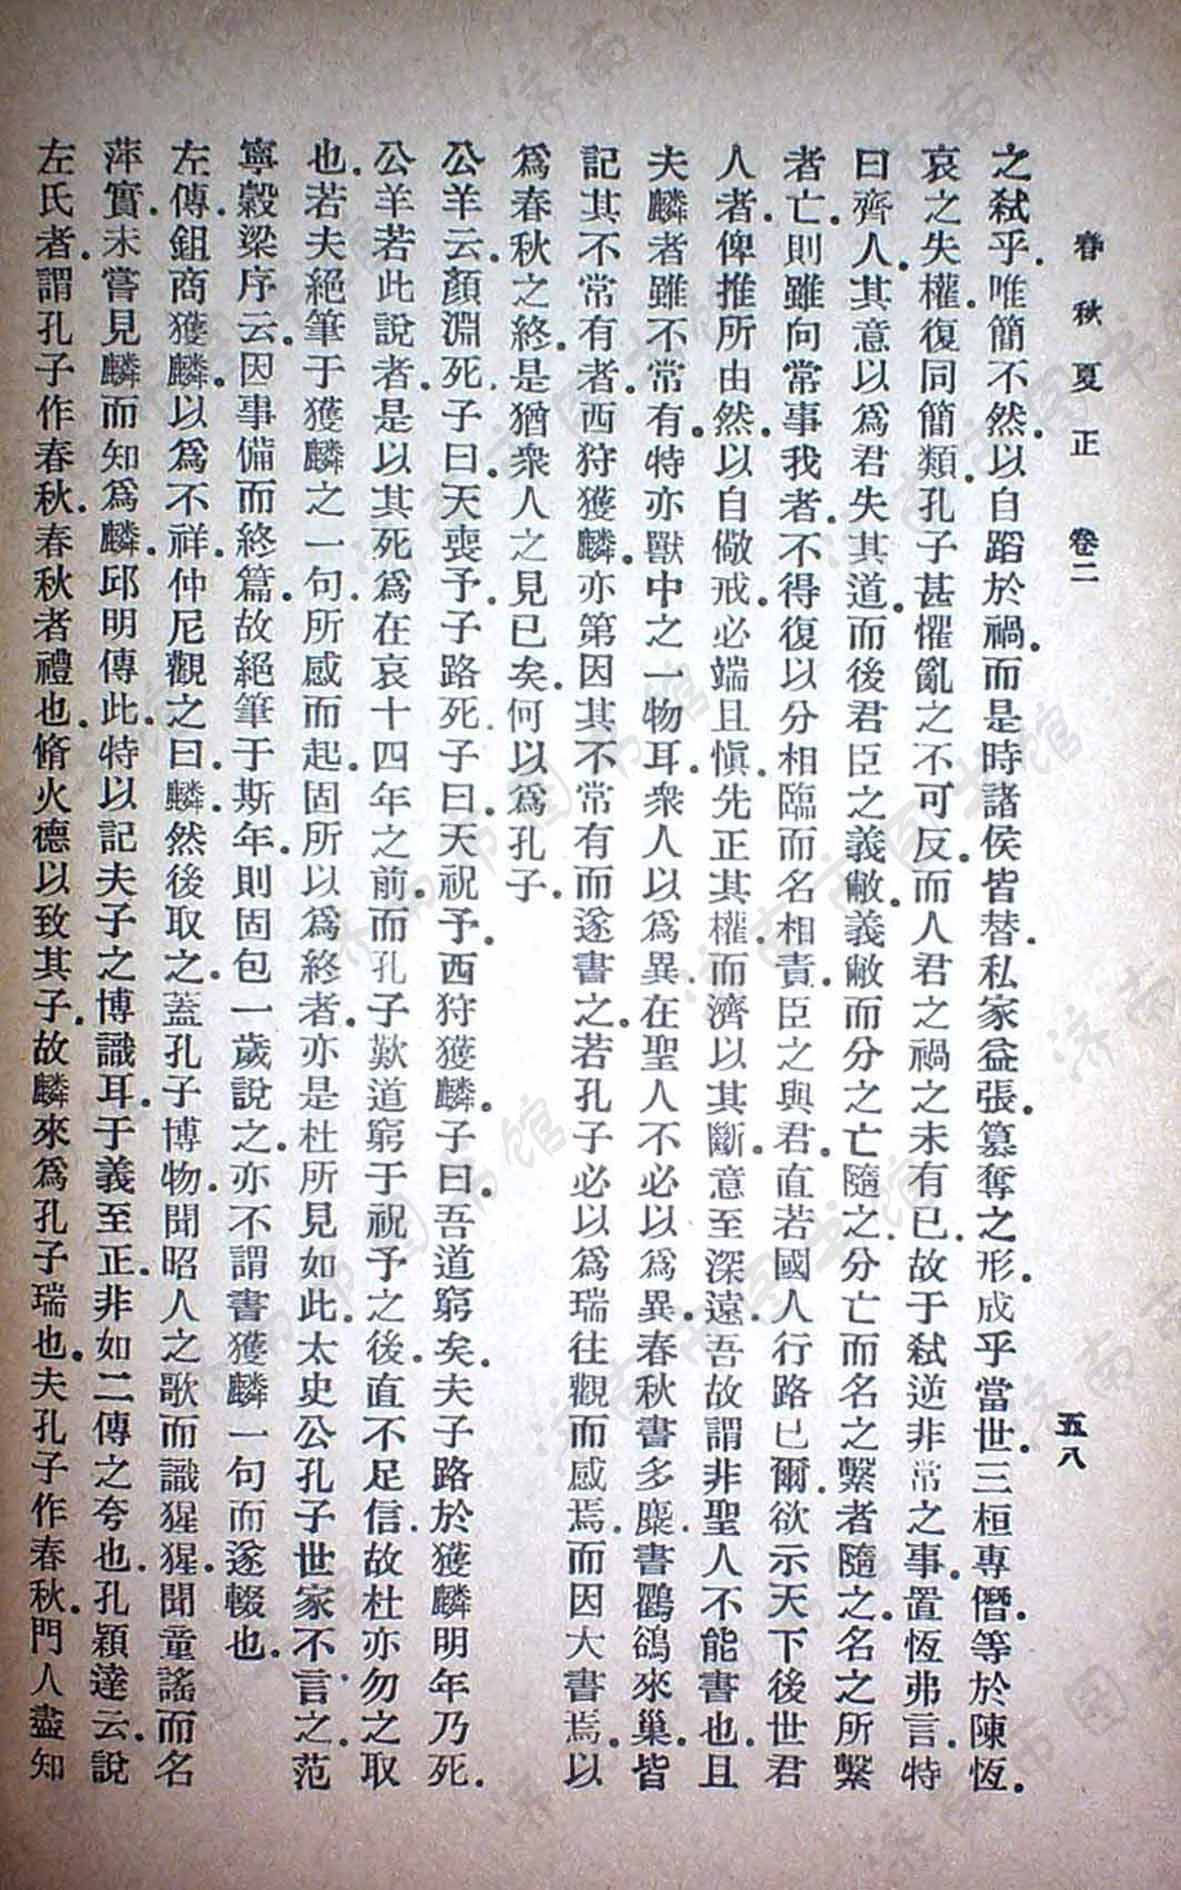 春秋夏正　卷二　五八
之弒乎.唯簡不然.以自蹈於禍.而是時諸侯皆替.私家益張.篡奪之形.成乎當世.三桓專僭.等於陳恆.
哀之失權.復同簡類.孔子甚懼亂之不可反.而人君之禍之未有已.故于弒逆非常之事.置恆弗言.特
曰齊人.其意以爲君失其道.而後君臣之義敝.義敝而分之亡隨之.分亡而名之繫者隨之.名之所繫
者亡.則雖向常事我者.不得復以分相臨而名相責.臣之與君.直若國人行路已爾.欲示天下後世君
人者.俾推所由然.以自儆戒.必端且愼.先正其權.而濟以其斷.意至深遠.吾故謂非聖人不能書也.且
夫麟者雖不常有.特亦獸中之一物耳.衆人以爲異.在聖人不必以爲異.春秋書多麋.書鸜鵒來巢.皆
記其不常有者.西狩獲麟.亦第因其不常有而遂書之.若孔子必以爲瑞.往觀而感焉.而因大書焉.以
爲春秋之終.是猶衆人之見已矣.何以爲孔子.
公羊云.顏淵死.子曰.天喪予.子路死.子曰.天祝予.西狩獲麟.子曰.吾道窮矣.夫子路於獲麟明年乃死.
公羊若此說者.是以其死爲在哀十四年之前.而孔子歎道窮于祝予之後.直不足信.故杜亦勿之取
也.若夫絕筆于獲麟之一句.所感而起.固所以爲終者.亦是杜所見如此.太史公孔子世家不言之.范
寧穀梁序云.因事備而終篇.故絕筆于斯年.則固包一歲說之.亦不謂書獲麟一句而遂輟也.
左傳.鉏商獲麟.以爲不祥.仲尼觀之曰.麟.然後取之.蓋孔子博物.聞昭人之歌而識猩猩.聞童謠而名
萍實.未嘗見麟而知爲麟.邱明傳此.特以記夫子之博識耳.于義至正.非如二傳之夸也.孔穎達云.說
左氏者.謂孔子作春秋.春秋者禮也.脩火德以致其子.故麟來爲孔子瑞也.夫孔子作春秋.門人盡知
济南市图书馆